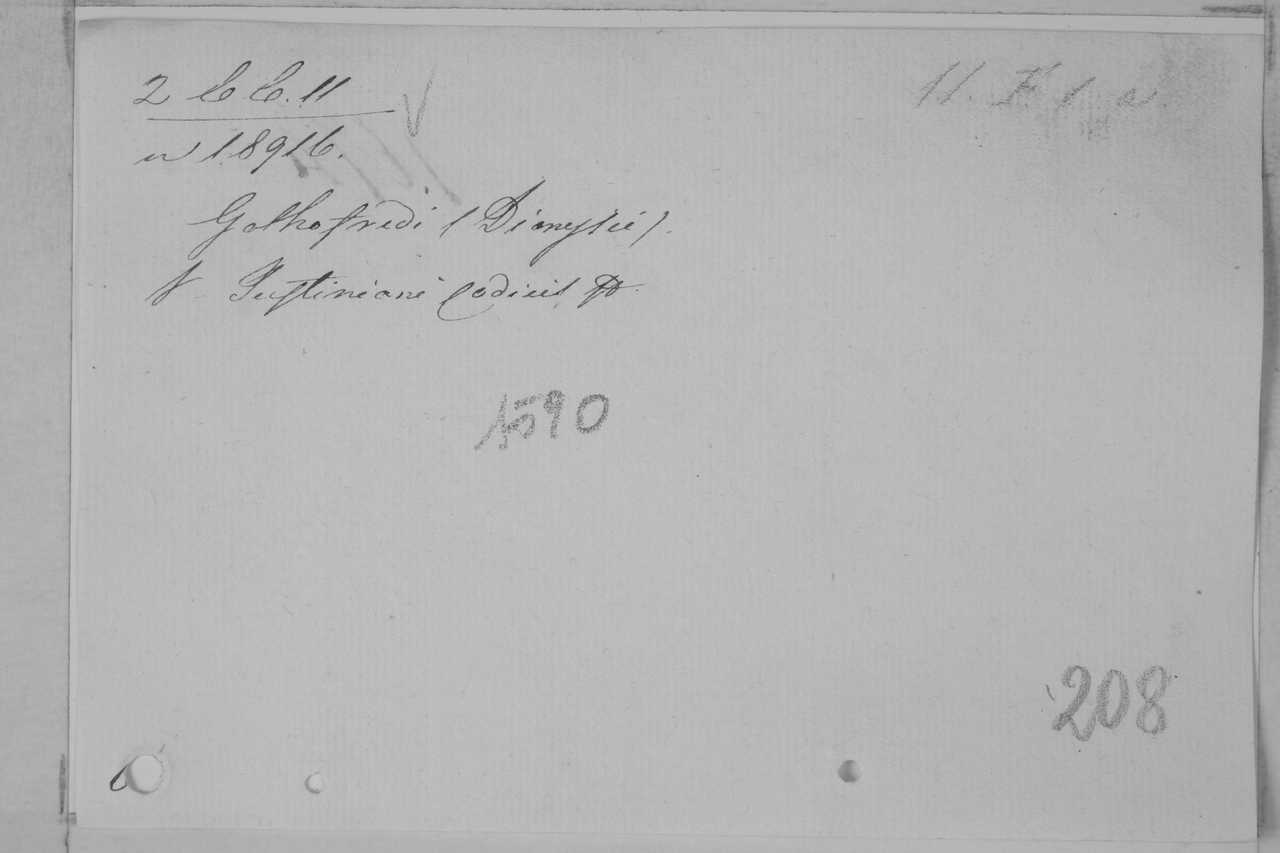 2 C C. 11
11. F 1 a.
n 18916.
Gothofredi (Dionysii).
Justiniani Codicis
1590
208